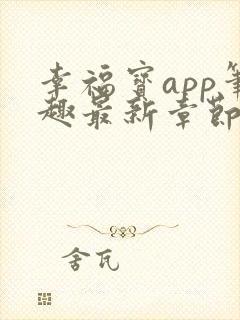 幸福宝app笔
趣最新章节
舍瓦